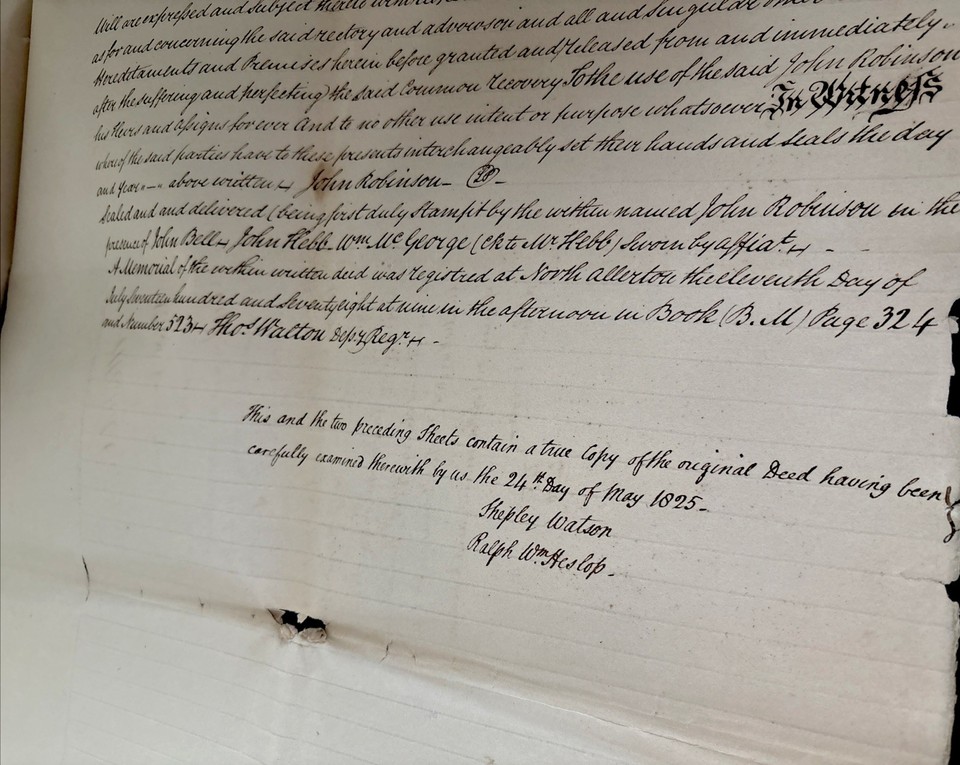 Will are expressed and subject thereto
as for and concerning the said rectory and advowson and all and singular other
Hereditaments and Premises herein before granted and released from and immediately
after the suffering and perfecting the said Common recovery To the use of the said John Robinson
his heirs and assigns for ever And to no other use intent or purpose whatsoever In Witness
whereof the said parties have to these presents interchangeably set their hands and seals the day
and year above written John Robinson
Sealed and and delivered (being first duly stampt by the within named John Robinson in the
presence of John Bell John Hebb Wm. Mc. George (Ck to Mr. Hebb) Sworn by affiat.
A Memorial of the within written deed was registred at North allerton the eleventh Day of
July Seventeen hundred and Seventy eight at nine in the afternoon in Book (B.M) Page 324
and Number 523 Thos. Walton Depy Regr.
This and the two preceding Sheets contain a true Copy of the original Deed having been
carefully examined therewith by us the 24th Day of May 1825
Shepley Watson
Ralph Wm Heslop